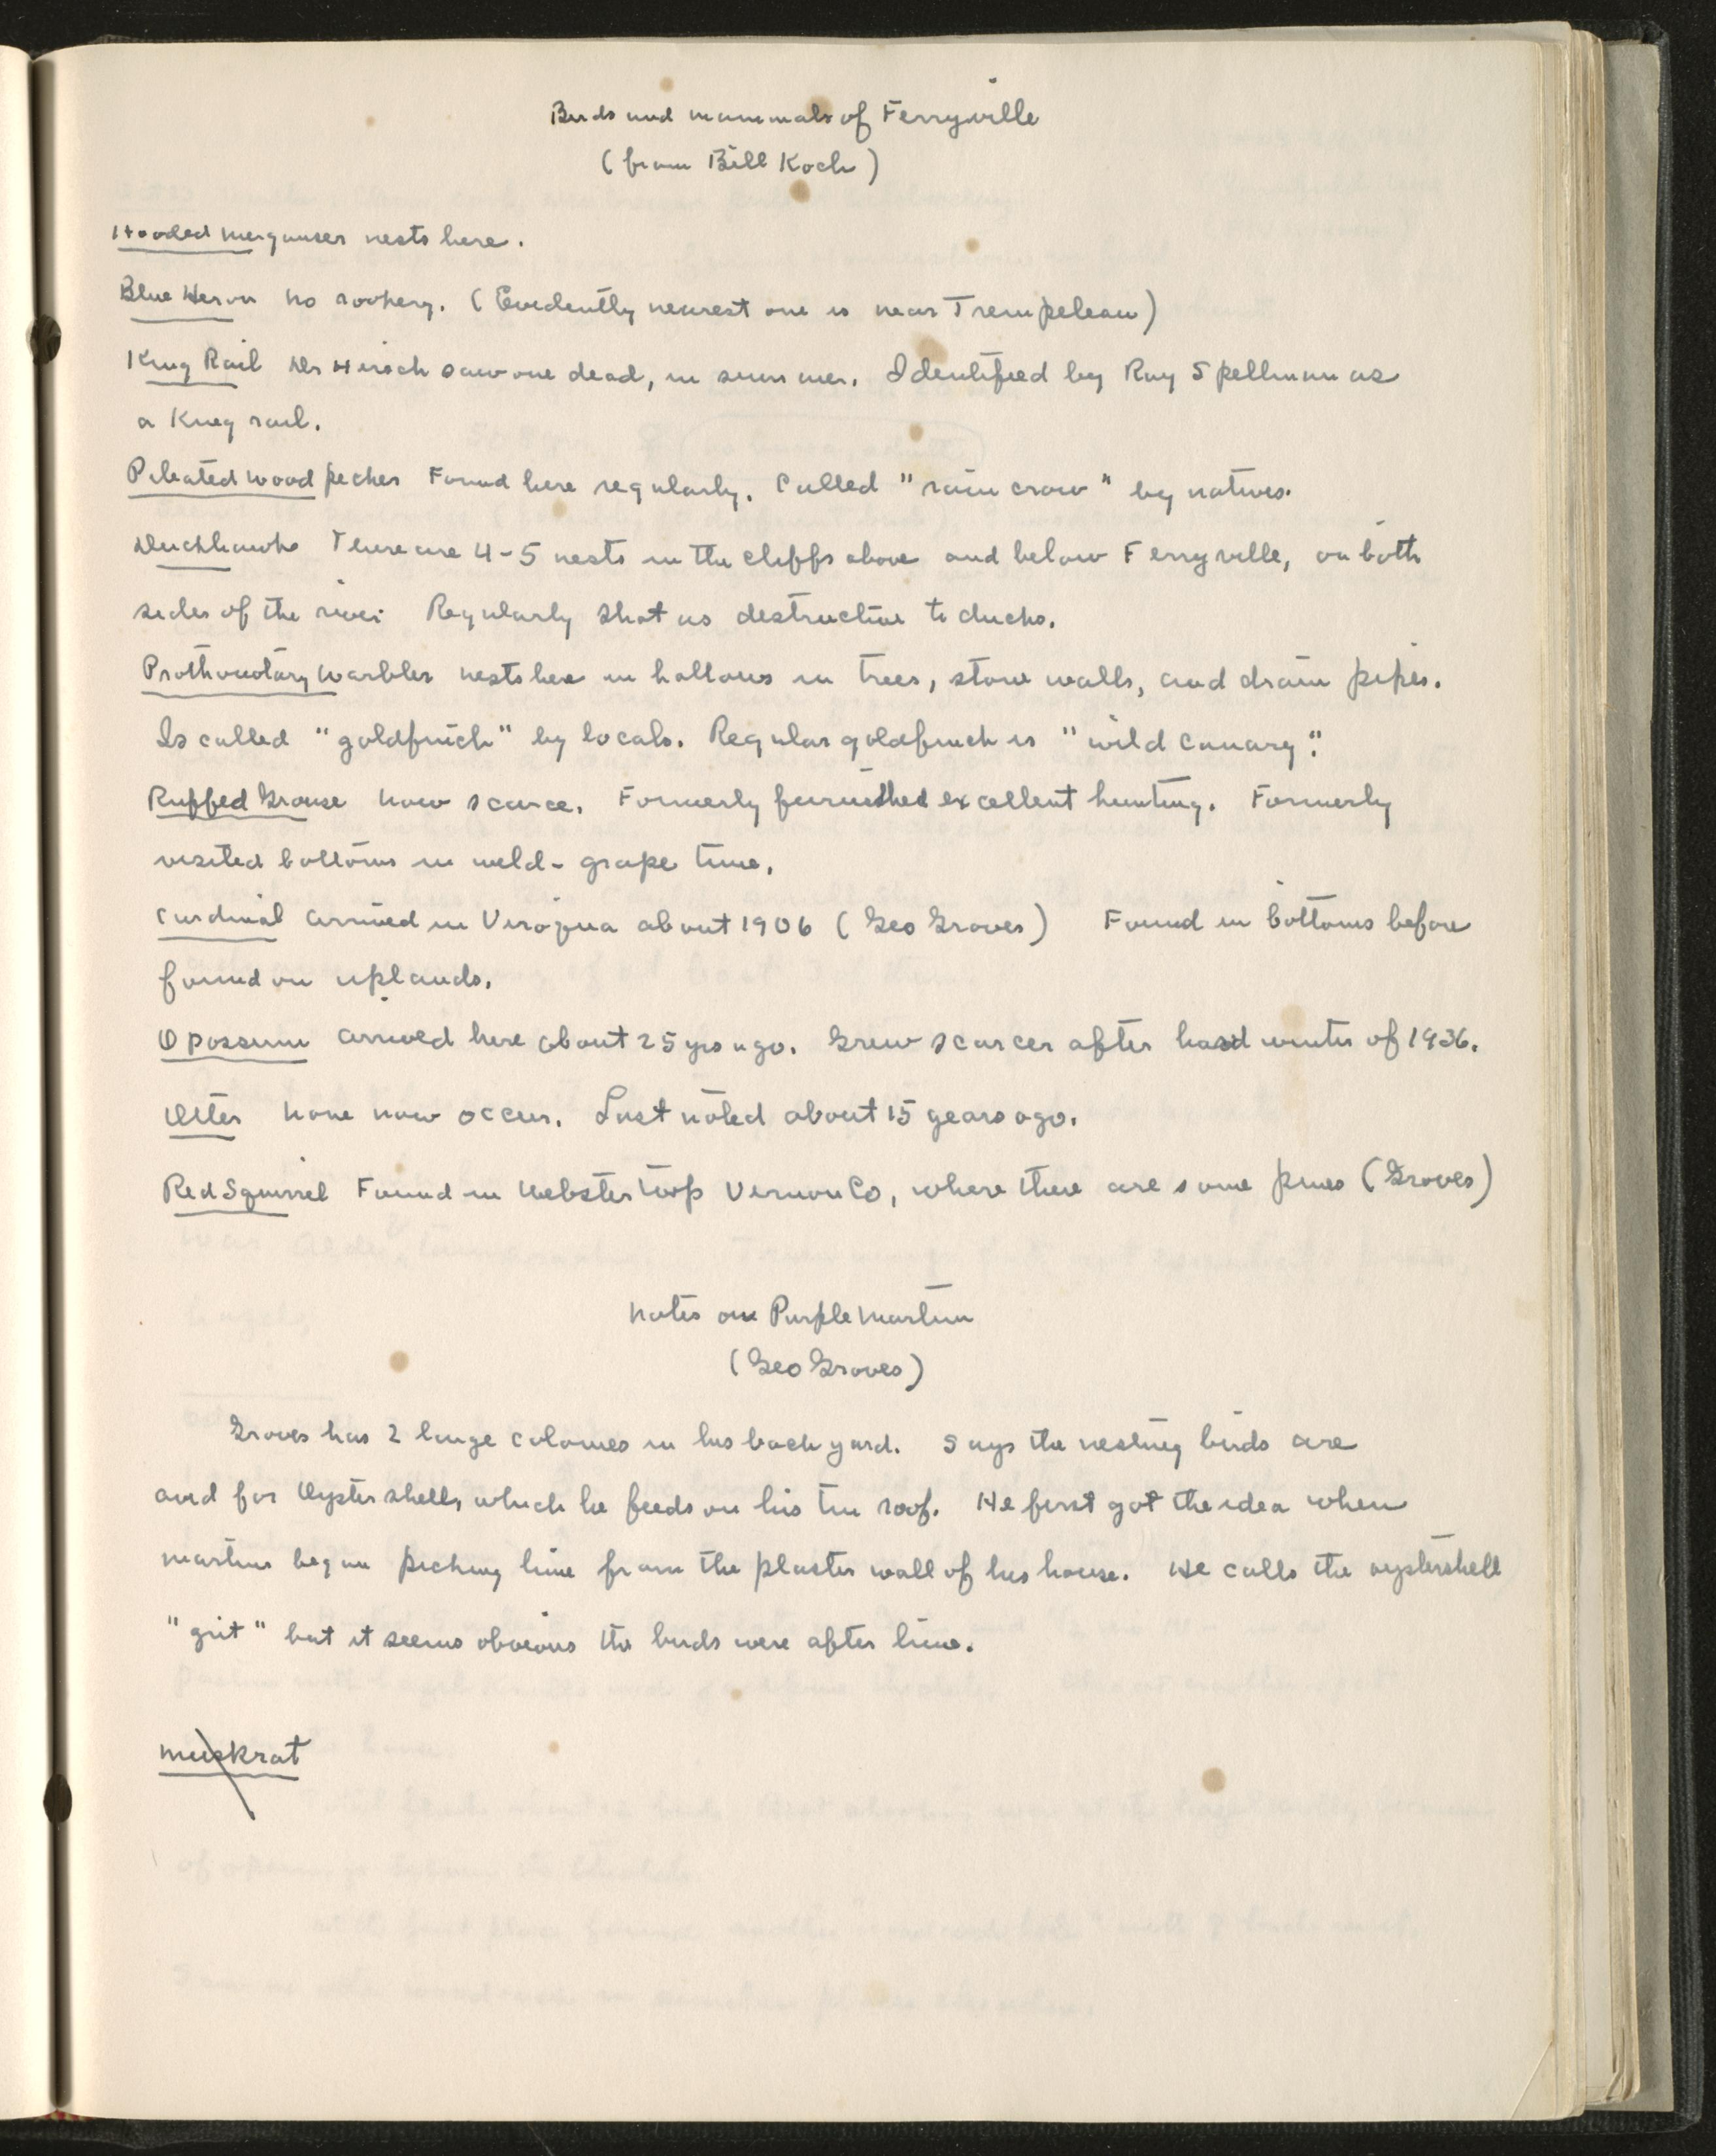 Birds and mammals of Ferryville
(from Bill Koch)
Hooded Merganser nests here.
Blue Heron No rookery. (Evidently nearest one is near Trempeleau)
King Rail Dr Hirsch saw one dead, in summer. Identified by Ray Spellman as
a King rail.
Pileated woodpecker Found here regularly. Called "rain crow" by natives.
Duckhawk There are 4-5 nests in the cliffs above and below Ferryville, on both
sides of the river Regularly shot as destructive to ducks.
Prothonotary Warbler nests here in hollows in trees, stone walls, and drain pipes.
Is called "goldfinch" by locals. Regular goldfinch is "wild canary".
Ruffed Grouse now scarce. Formerly furnished excellent hunting. Formerly
visited bottoms in wild-grape time.
Cardinal arrived in Viroqua about 1906 (Geo Groves) Found in bottoms before
found on uplands.
Opossum arrived here about 25 yrs ago. Grew scarcer after hard winter of 1936.
Otter None now occur. Last noted about 15 years ago.
Red Squirrel Found in Webster Twp Vernon Co, where there are some pines (Groves)
Notes on Purple Martin
(Geo Groves)
Groves has 2 large colonies in his back yard. Says the nesting birds are
avid for Oyster shells, which he feeds on his tin roof. He first got the idea when
martins began picking lime from the plaster wall of his house. He calls the oystershell
"grit" but it seems obvious the birds were after lime.
Muskrat